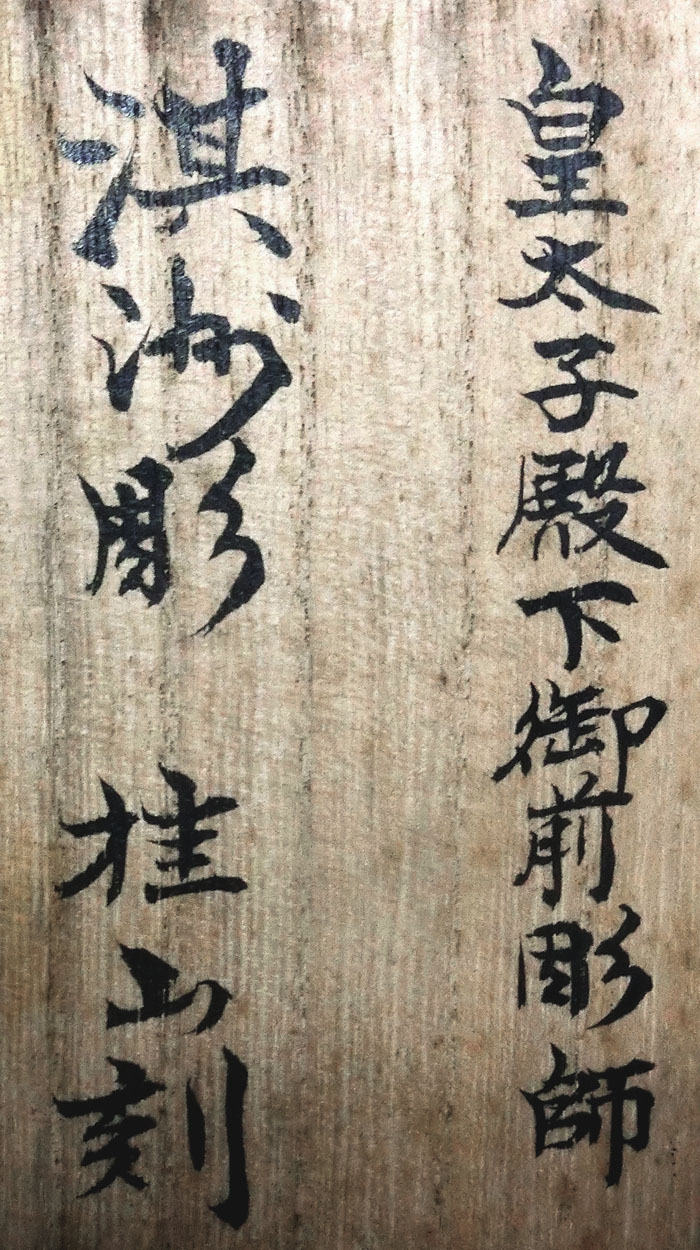 皇太子殿下御前彫師
淇洲彫 桂山刻